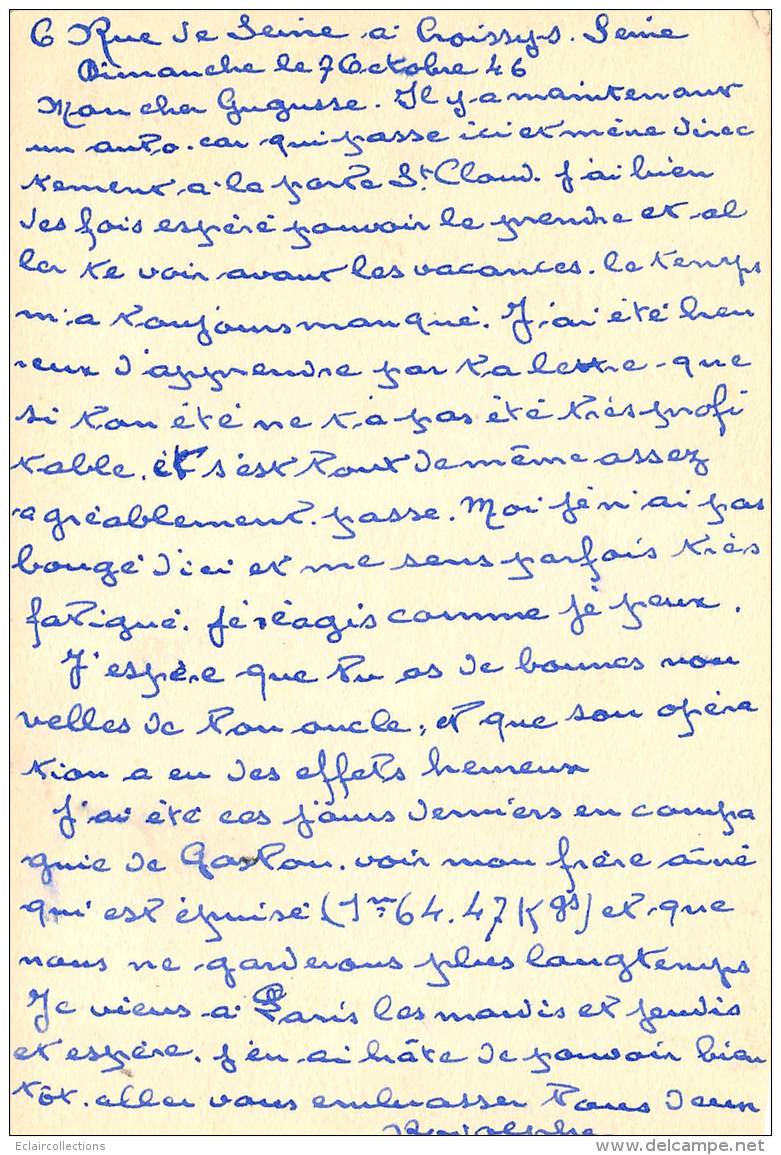 6 Rue de Seine à Croissy s. Seine
Dimanche le 7 Octobre 46
Mon cher Gugusse. Il y a maintenant
un auto.car qui passe ici et mène direc
tement à la porte St. Cloud. J'ai bien
des fois espéré pouvoir le prendre et al
ler te voir avant les vacances. le temps
m'a toujours manqué. J'ai été heu
reux d'apprendre par ta lettre que
si ton été ne t'a pas été très profi
table. il s'est tout de même assez
agréablement passé. Moi je n'ai pas
bougé d'ici et me sens parfois très
fatigué. je réagis comme je peux.
J'espère que tu as de bonnes nou
velles de ton oncle, et que son opéra
tion a eu des effets heureux
J'ai été ces jours derniers en compa
gnie de Gaston. voir mon frère aîné
qui est épuisé (1m64. 47 Kgs) et que
nous ne garderons plus longtemps
Je viens à Paris les mardis et jeudis
et espère. j'en ai hâte de pouvoir bien
tôt. aller vous embrasser tous deux
Rodolphe
Eclaircollections